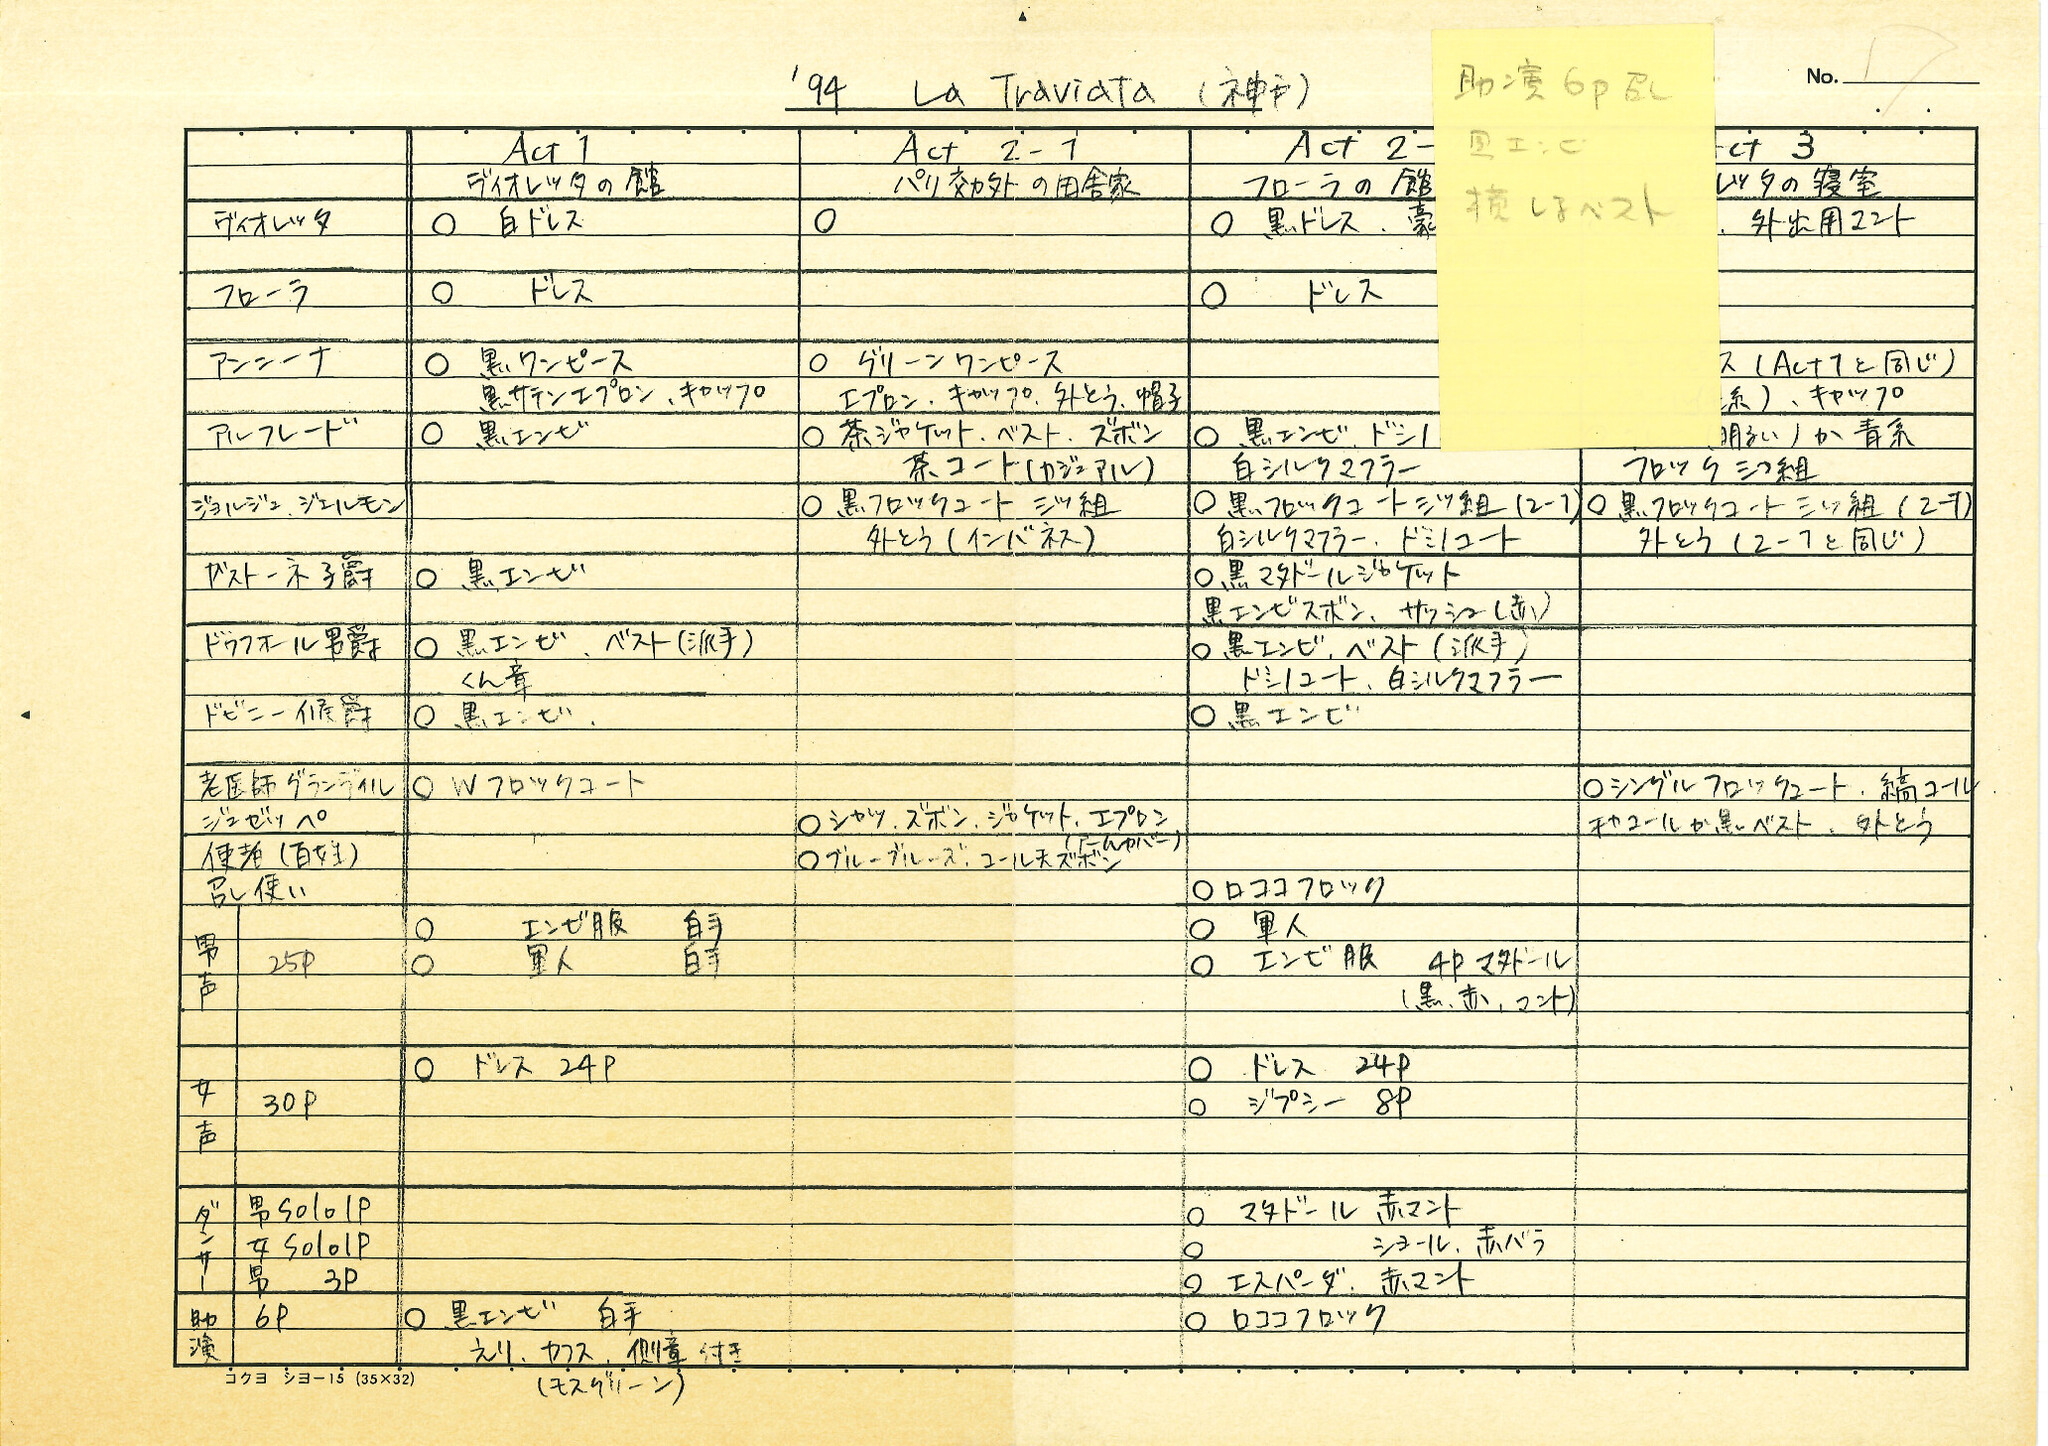 '94 La Traviata (神戸)
No. 17
助演 6P 召し
黒エンビ
横しまベスト
Act 1 Act 2-1 Act 2- ct 3
ヴィオレッタの館 パリ郊外の田舎家 フローラの館 レッタの寝室
ヴィオレッタ ○ 白ドレス ○ ○ 黒ドレス、豪 、外出用マント
フローラ ○ ドレス ○ ドレス
アンニーナ ○ 黒ワンピース ○ グリーンワンピース ス (Act1と同じ)
黒サテンエプロン、キャップ エプロン、キャップ、外とう、帽子 系)、キャップ
アルフレード ○ 黒エンビ ○ 茶ジャケット、ベスト、ズボン ○ 黒エンビ、ドミノ 明るい)か青系
茶コート(カジュアル) 白シルクマフラー フロック三ツ組
ジョルジュ、ジェルモン ○ 黒フロックコート三ツ組 ○ 黒フロックコート三ツ組 (2-1) ○ 黒フロックコート三ツ組 (2-1)
外とう(インバネス) 白シルクマフラー、ドミノコート 外とう(2-1と同じ)
ガストーネ子爵 ○ 黒エンビ ○ 黒マタドールジャケット
黒エンビズボン、サッシュ(赤)
ドゥフォール男爵 ○ 黒エンビ、ベスト(派手) ○ 黒エンビ、ベスト(派手)
くん章 ドミノコート、白シルクマフラー
ドビニー候爵 ○ 黒エンビ、 ○ 黒エンビ
老医師グランヴィル ○ Wフロックコート ○ シングルフロックコート、縞コール
ジュゼッペ ○ シャツ、ズボン、ジャケット、エプロン チャコールか黒ベスト、外とう
(アームカバー)
使者(百姓) ○ ブルーブルーズ、コール天ズボン
召し使い ○ ロココフロック
男声 25P ○ エンビ服 白手 ○ 軍人
○ 軍人 白手 ○ エンビ服 4Pマタドール
(黒、赤、マント)
女声 30P ○ ドレス 24P ○ ドレス 24P
○ ジプシー 8P
ダンサー 男 Solo 1P ○ マタドール 赤マント
女 Solo 1P ○ ショール、赤バラ
男 3P ○ エスパーダ、赤マント
助演 6P ○ 黒エンビ 白手 ○ ロココフロック
えり、カフス、側章付き
(モスグリーン)
コクヨ シヨー15 (35×32)